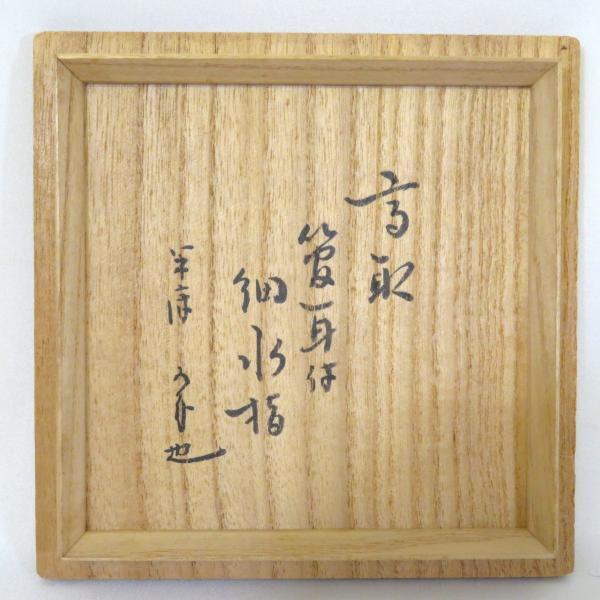 高取
管耳付
細水指
半床 宗也